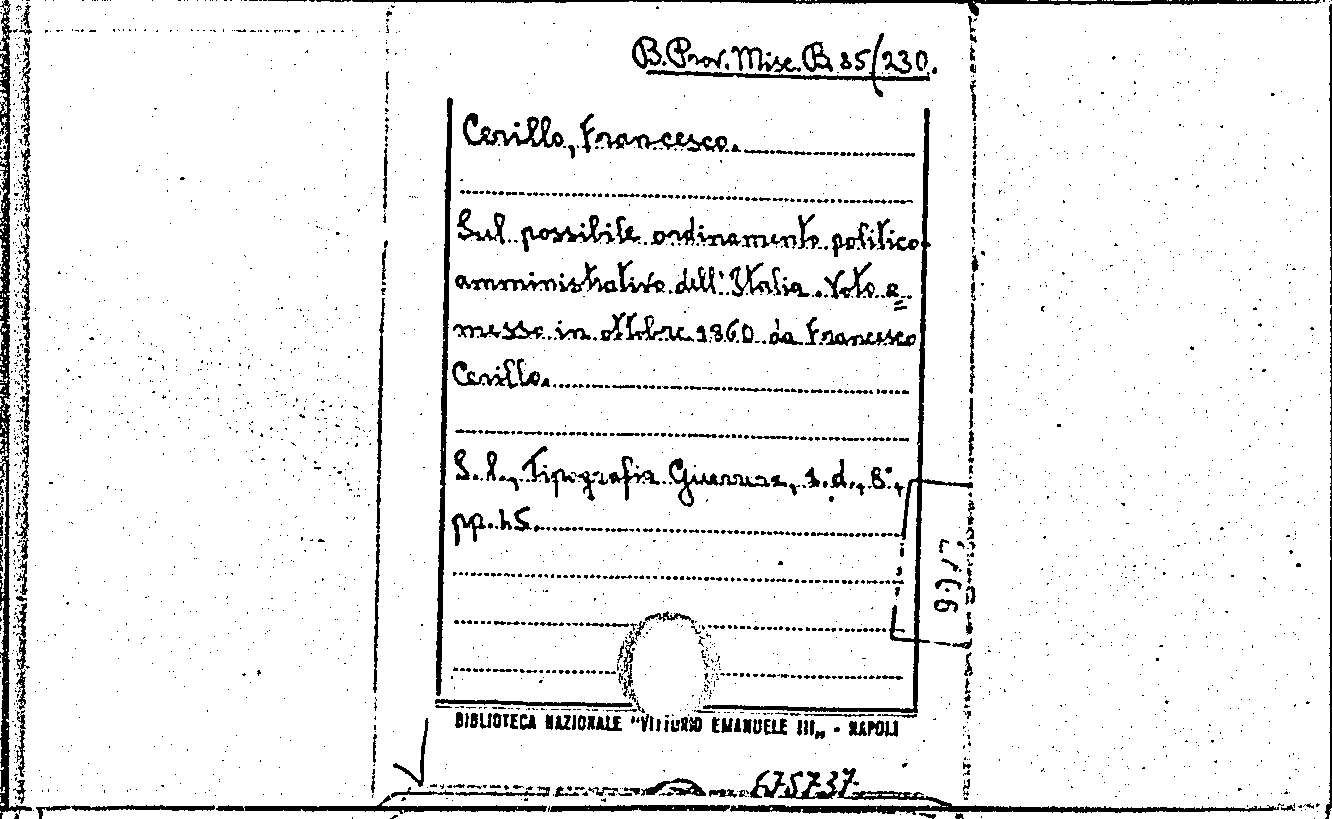 B. Prov. Misc. B. 35/230.
Cerillo, Francesco.
Sul possibile ordinamento politico-
amministrativo dell'Italia. Voto e=
messo in ottobre 1860 da Francesco
Cerillo.
S. l., Tipografia Guerrera, s. d., 8°,
pp. 15.
BIBLIOTECA NAZIONALE "VITTORIO EMANUELE III„ - NAPOLI
675737